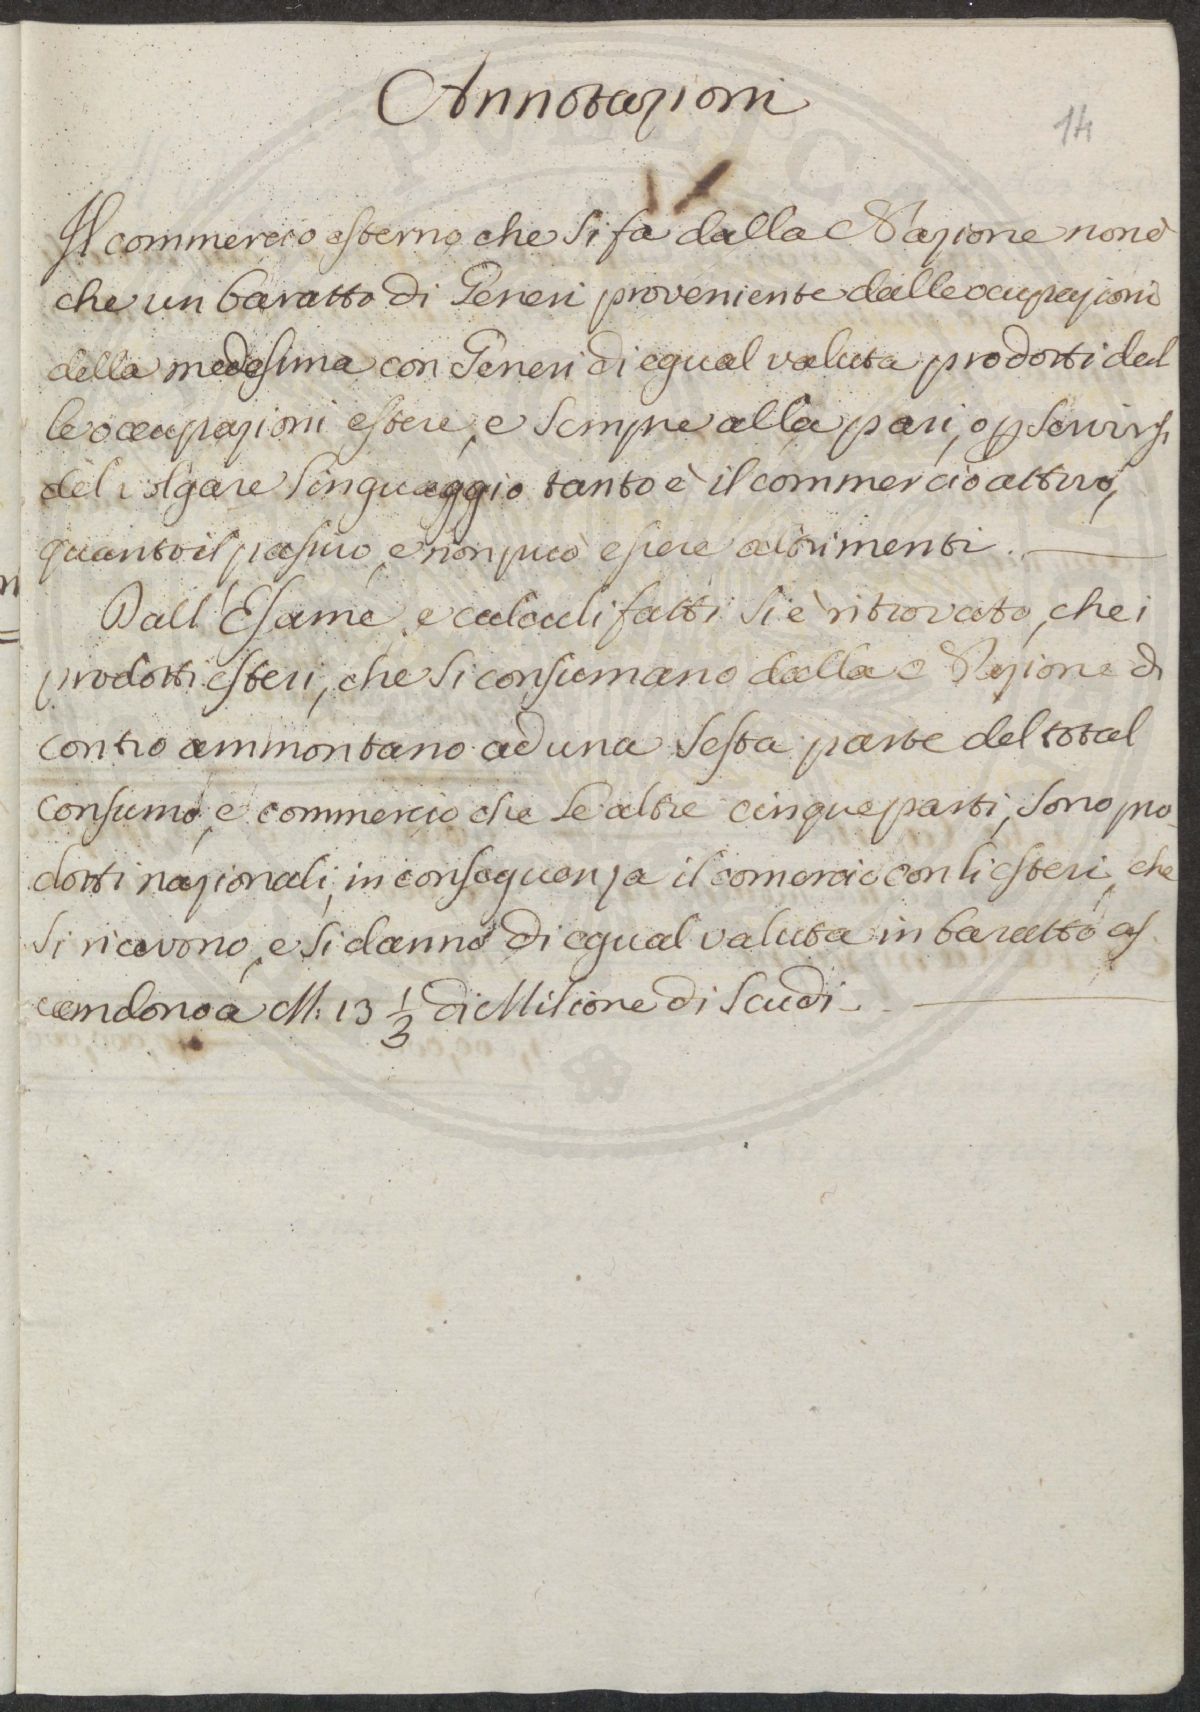 Annotazioni
14
Il commercio esterno che si fa dalla Nazione non è
che un baratto di Generi proveniente dalle ocupazioni
della medesima con Generi di egual valuta prodotti dal
le occupazioni estere, e sempre alla pari, o p servirsi
del volgare linguaggio tanto è il commercio attivo,
quanto il passivo, e non può essere altrimenti.
Dall'Esame, e calculi fatti si è ritrovato, che i
prodotti esteri, che si consumano dalla Nazione di
contro ammontano ad una sesta parte del total
consumo, e commercio che le altre cinque parti, sono pro
dotti nazionali, in conseguenza il comercio con li esteri, che
si ricevono, e si danno di egual valuta in baratto as
cendono a M: 13 1/3 di Milione di Scudi